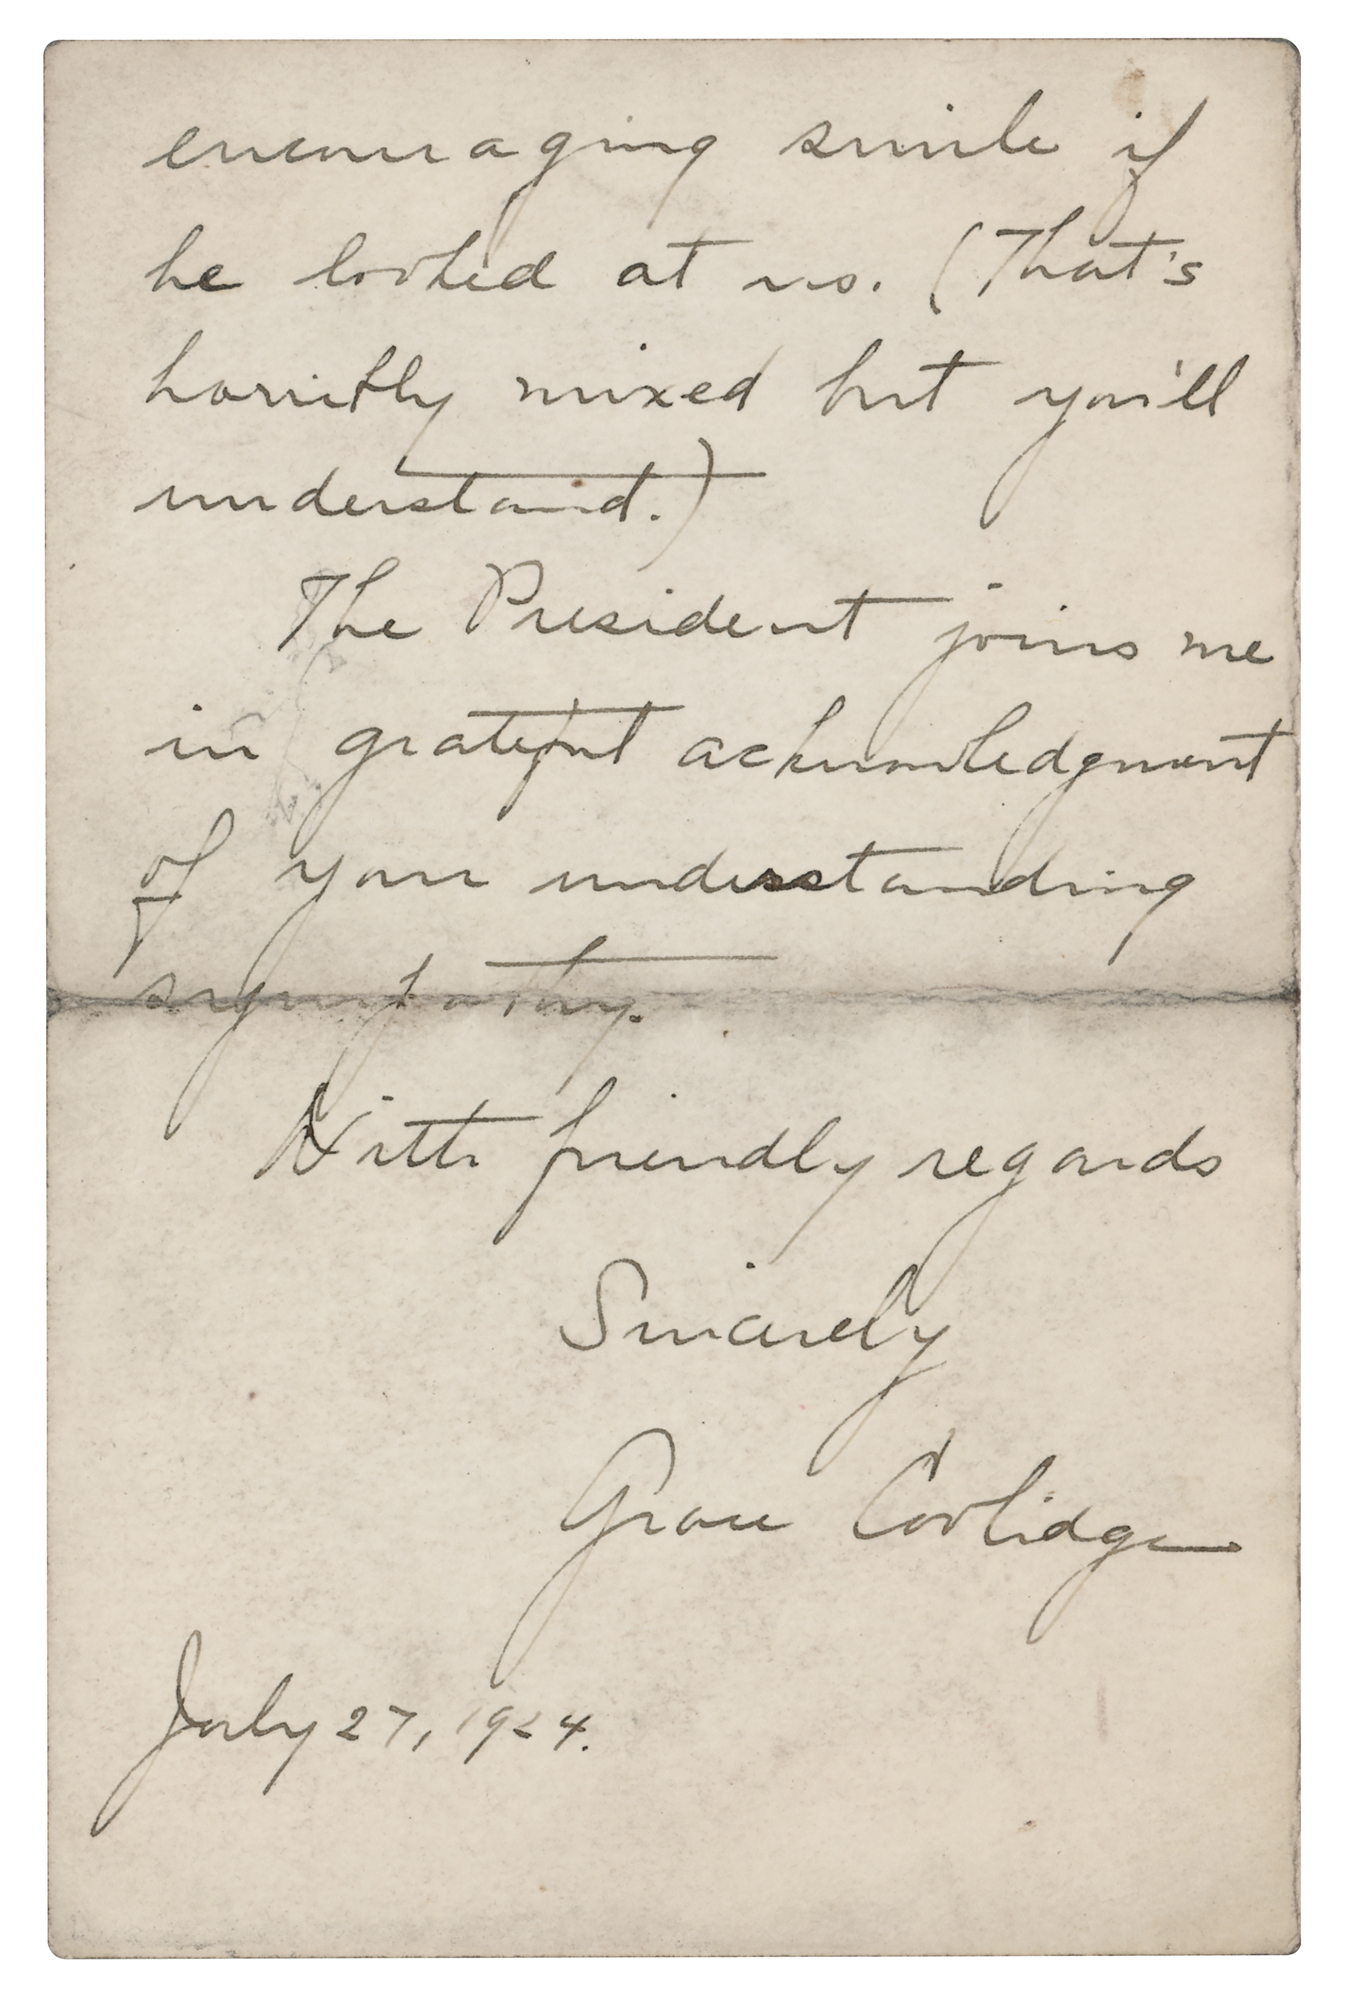 encouraging smile if
he looked at us. (That's
horribly mixed but you'll
understand.)
The President joins me
in grateful acknowledgment
of your understanding
sympathy.
With friendly regards
Sincerely
Grace Coolidge
July 27, 1924.